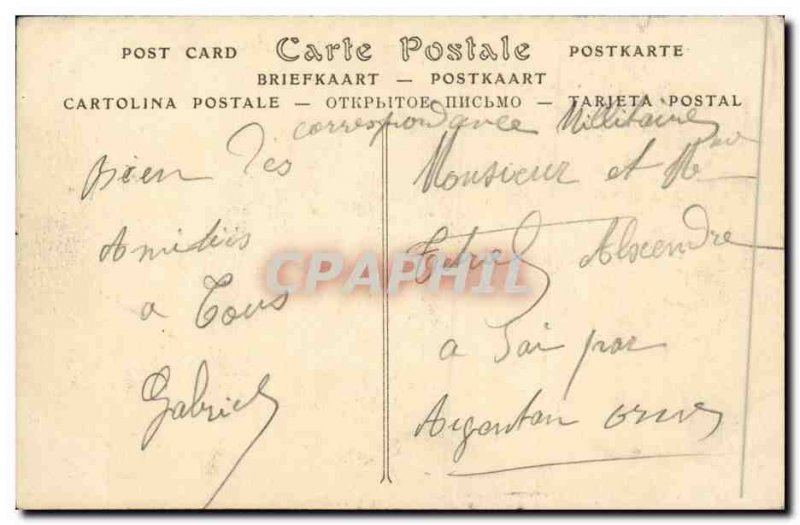 POST CARD Carte Postale POSTKARTE
BRIEFKAART — POSTKAART
CARTOLINA POSTALE — ОТКРЫТОЕ ПИСЬМО — TARJETA POSTAL
correspondance Millitaire
bien des
Amitiés
a Tous
Gabriel
Monsieur et Mme
Alexendre
a Sai par
Argentan orne
CPAPHIL